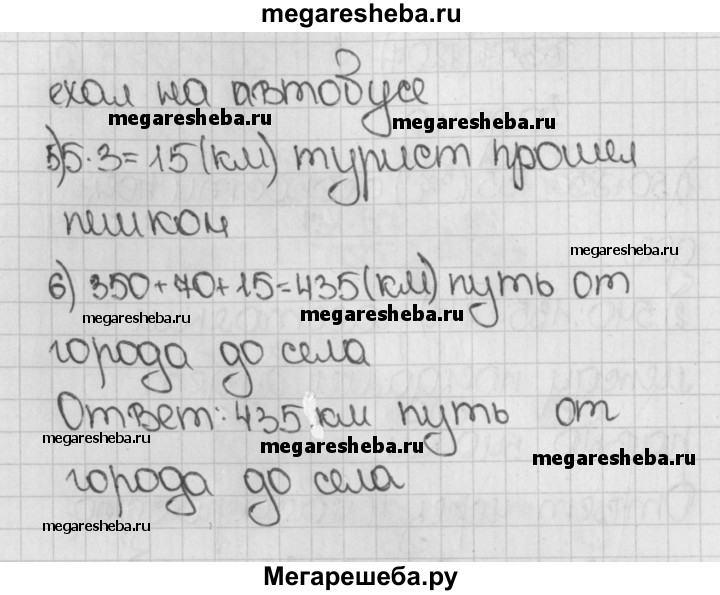 megaresheba.ru
ехал на автобусе
megaresheba.ru
megaresheba.ru
5) 5·3=15(км) турист прошел
пешком
megaresheba.ru
6) 350+70+15=435(км) путь от
megaresheba.ru
megaresheba.ru
города до села
Ответ: 435 км путь от
megaresheba.ru
megaresheba.ru
megaresheba.ru
города до села
megaresheba.ru
Мегарешеба.ру